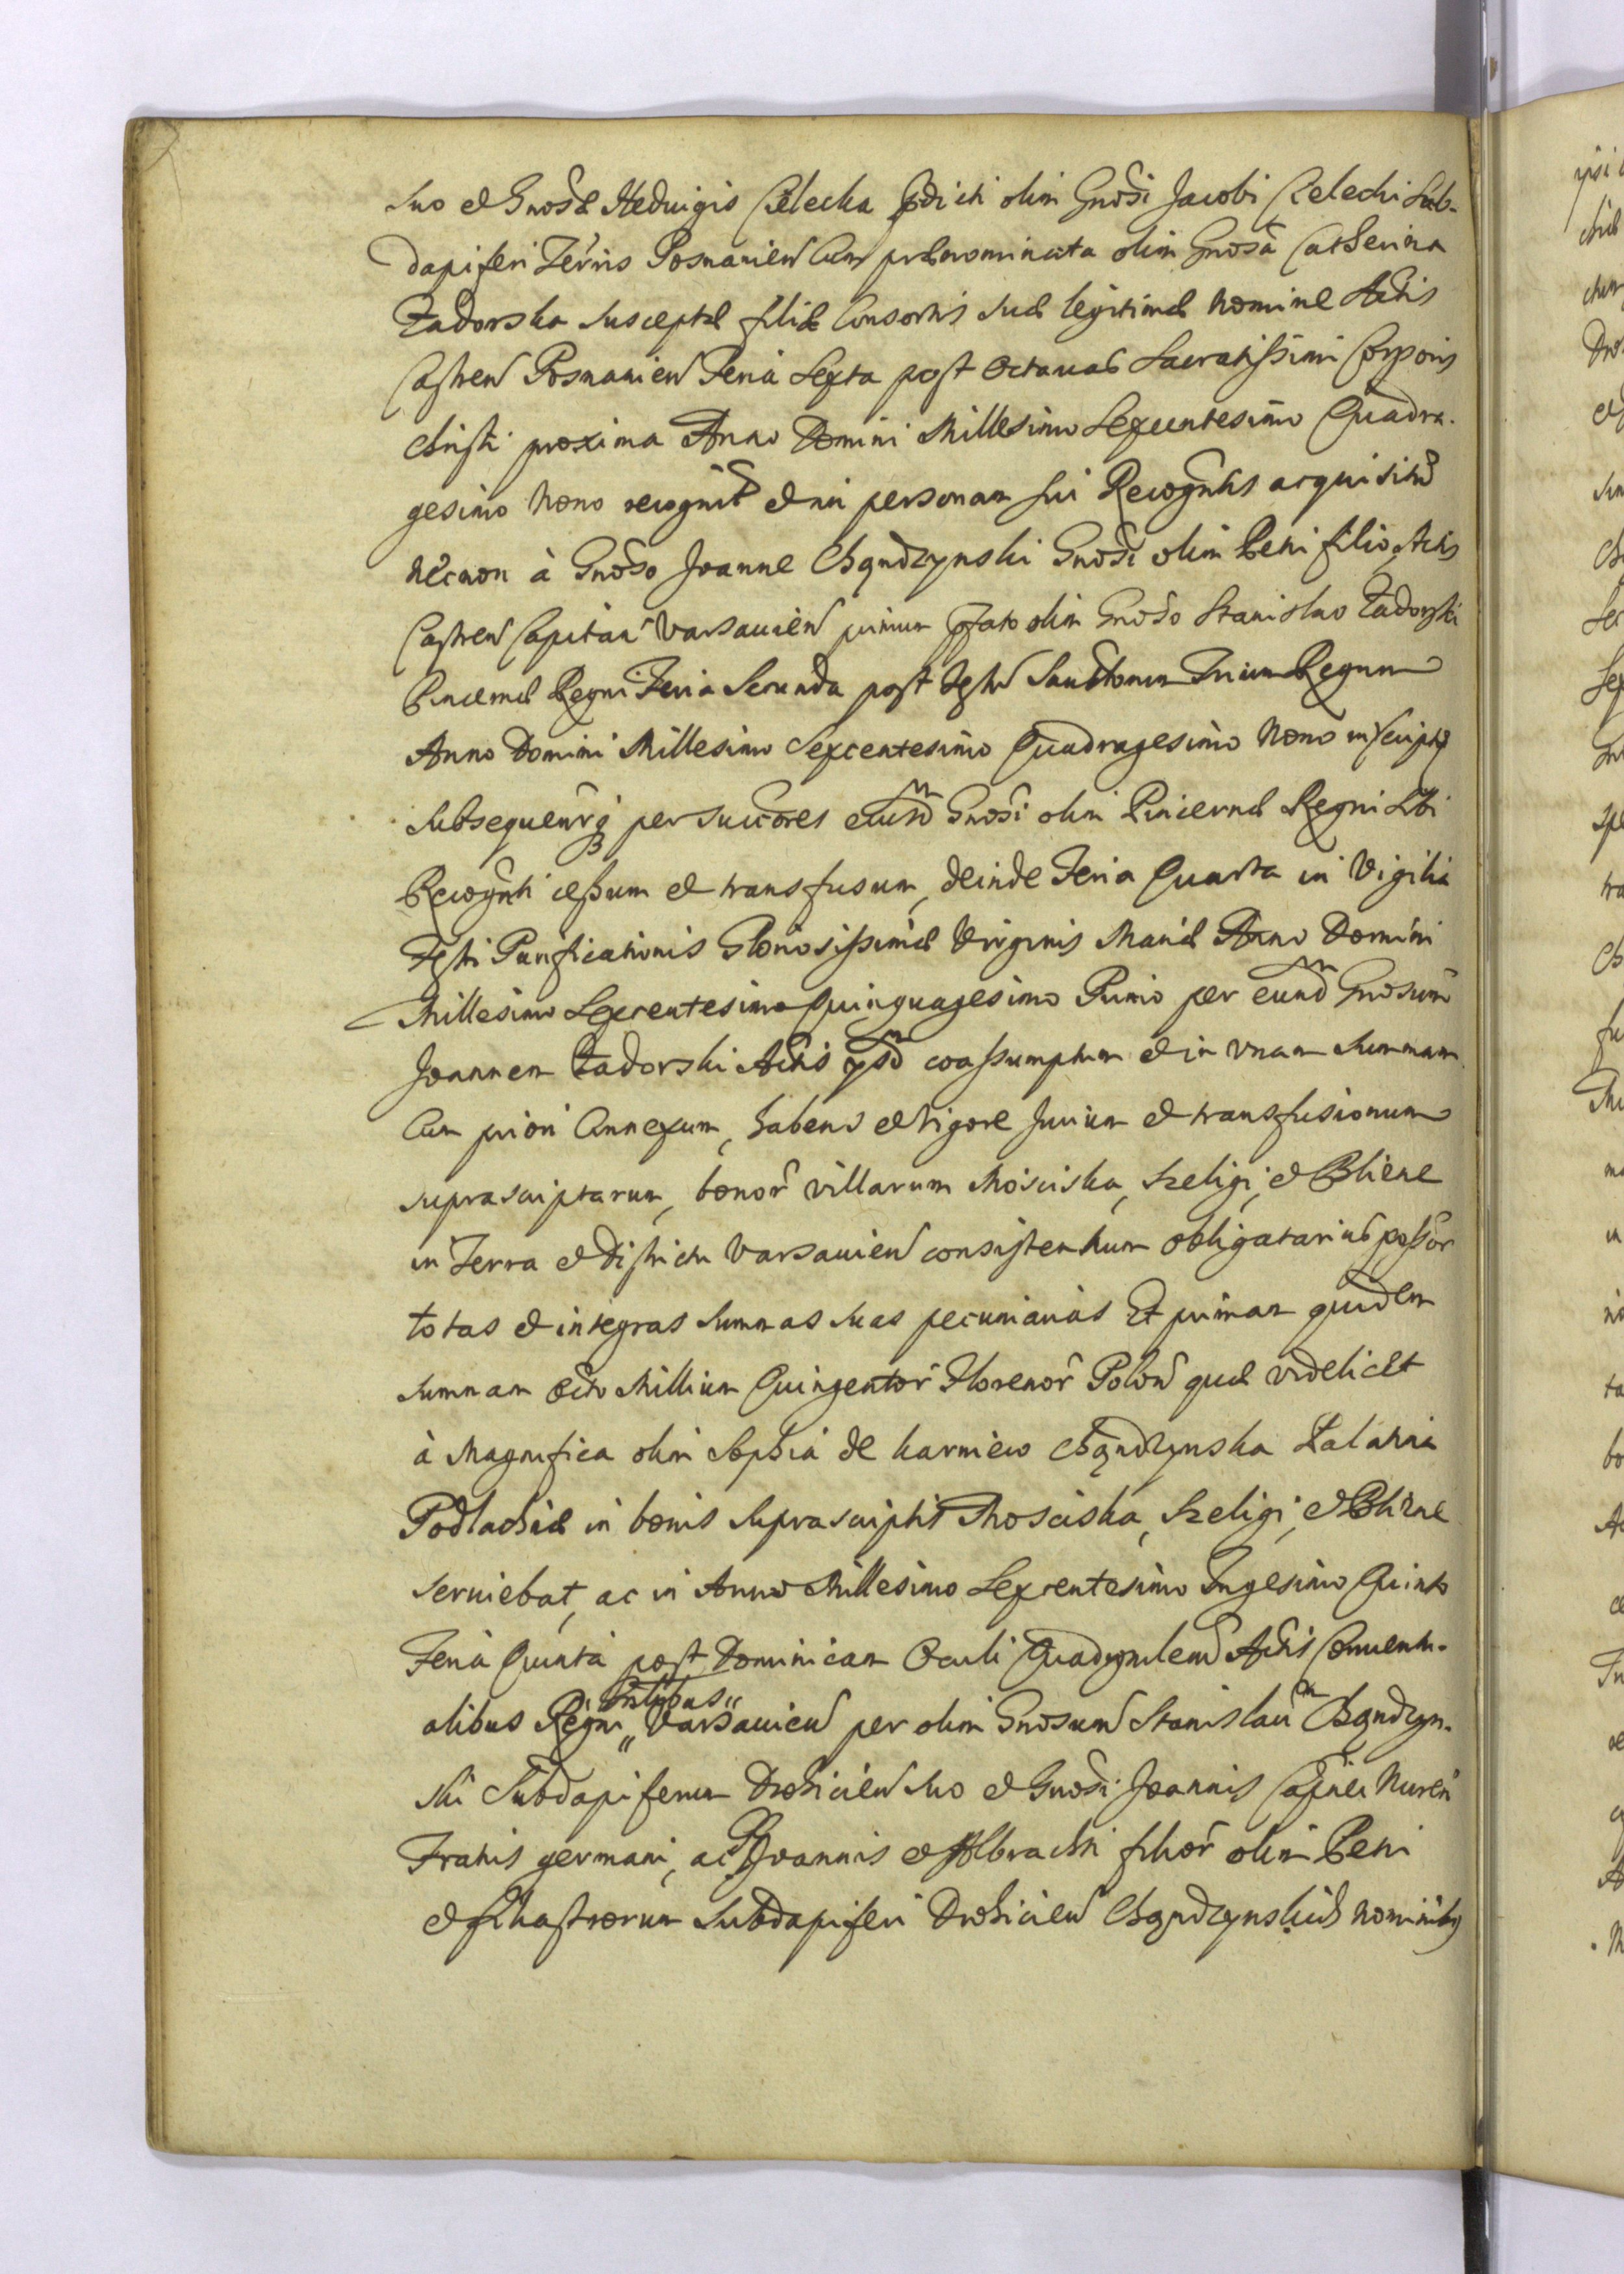 suo et Gnosæ Heduigis Cielecka pdicti olim Gnosi Jacobi Cielecki Sub-
dapiferi Terris Posnanien cum prænominata olim Gnosa Catherina
Zadorska susceptæ filiæ Consortis suæ legitimæ nomine Actis
Castren Posnanien Feria Sexta post Octauas Sacratissimi Corporis
Christi proxima Anno Domini Millesimo Sexcentesimo Quadra-
gesimo Nono recognit et in personam sui Recogntis acquisitu
necnon à Gnoso Joanne Chądzynski Gnosi olim Beni filio, Actis
Castren Capitan Varsauien primum pfato olim Gnoso Stanislao Zadorski
Pincernæ Regni Feria Secunda post festu Sanctorum Trium Regum
Anno Domini Millesimo Sexcentesimo Quadragesimo Nono inscriptu
subsequenrq per succores eiusd Gnosi olim Pincernæ Regni sbi
Recognti cessum et transfusum, deinde Feria Quarta in Vigilia
Festi Purificationis Gloriosissimæ Virginis Mariæ Anno Domini
Millesimo Sexcentesimo Quinquagesimo Primo per eund Gnosum
Joannem Zadorski Actis ysd coassumptum et in vnam summam
cum priori Annexum, habens et vigore Jurium et transfusionum
suprascriptarum, bonor villarum Mosciska, Szeligi, et Blizne
in Terra et Districtu Varsauien consistentium obligatarius possor
totas et integras summas suas pecuniarias Et primam quidem
summam octo Millium Quingentor Florenor Polon quæ videlicet
à Magnifica olim Sophia de Karniew Chądzynska Palatina
Podlachiæ in bonis suprascriptis Mosciska, Szeligi, et Blizne
seruiebat, ac in Anno Millesimo Sexcentesimo Trigesimo Quinto
Feria Quinta post Dominicam Oculi Quadragmlem Actis Conuenti-
alibus Regni Gnlibus Varsauien per olim Gnosum Stanislau Chądzyn-
ski Subdapiferum Drohicien suo et Gnosi Joannis Castnei Nuren
Fratris germani, ac Joannis et Albrachti filior olim Beni
et filiastrorum Subdapiferi Drohicien Chądzynskich nominibq